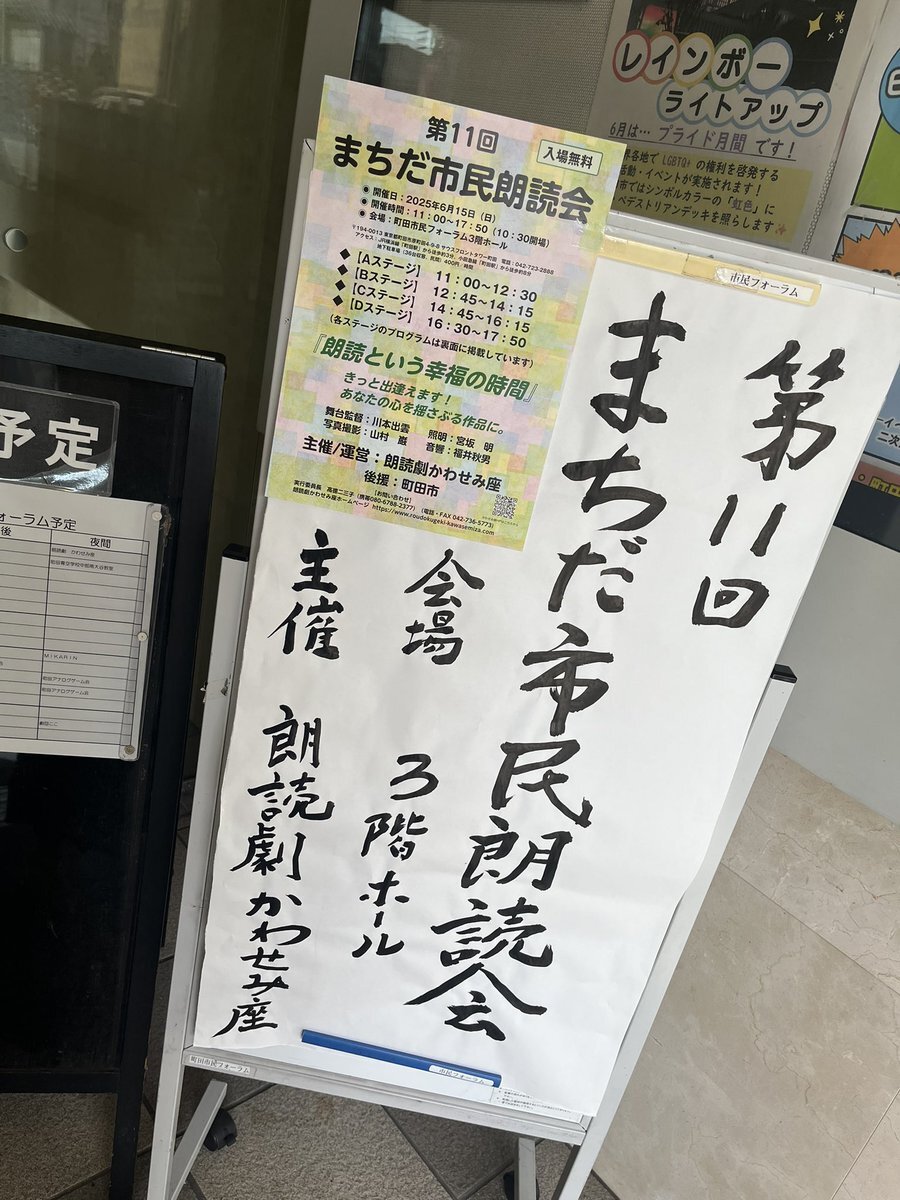 第11回
まちだ市民朗読会
入場無料
● 開催日:2025年6月15日(日)
● 開催時間:11:00〜17:50(10:30開場)
● 会場:町田市民フォーラム3階ホール
〒194-0013 東京都町田市原町田4-9-8 サウスフロントタワー町田 電話:042-723-2888
アクセス:JR横浜線「町田駅」から徒歩約3分、小田急線「町田駅」から徒歩約8分
地下駐車場(36台収容、民間)400円/時間
◆ [Aステージ] 11:00〜12:30
◆ [Bステージ] 12:45〜14:15
◆ [Cステージ] 14:45〜16:15
◆ [Dステージ] 16:30〜17:50
(各ステージのプログラムは裏面に掲載しています)
『朗読という幸福の時間』
きっと出逢えます!
あなたの心を揺さぶる作品に。
舞台監督:川本出雲 照明:宮坂 明
写真撮影:山村 巌 音響:福井秋男
主催/運営:朗読劇かわせみ座
後援:町田市
[お問い合わせ]
実行委員長 高橋二三子(携帯080-6788-2377)(電話・FAX 042-736-5773)
朗読劇かわせみ座ホームページ https://www.roudokugeki-kawasemiza.com
市民フォーラム
第11回
まちだ市民朗読会
会場 3階ホール
主催 朗読劇かわせみ座
町田市民フォーラム
市民フォーラム
レインボー
ライトアップ
6月は… プライド月間 です!
界各地で LGBTQ+ の権利を啓発する
活動・イベントが実施されます!
市ではシンボルカラーの「虹色」に
ペデストリアンデッキを照らします
予定
ォーラム予定
後 夜間
朗読劇 かわせみ座
MIKARIN
町田アナログゲーム会
町田アナログゲーム会
劇団ここ